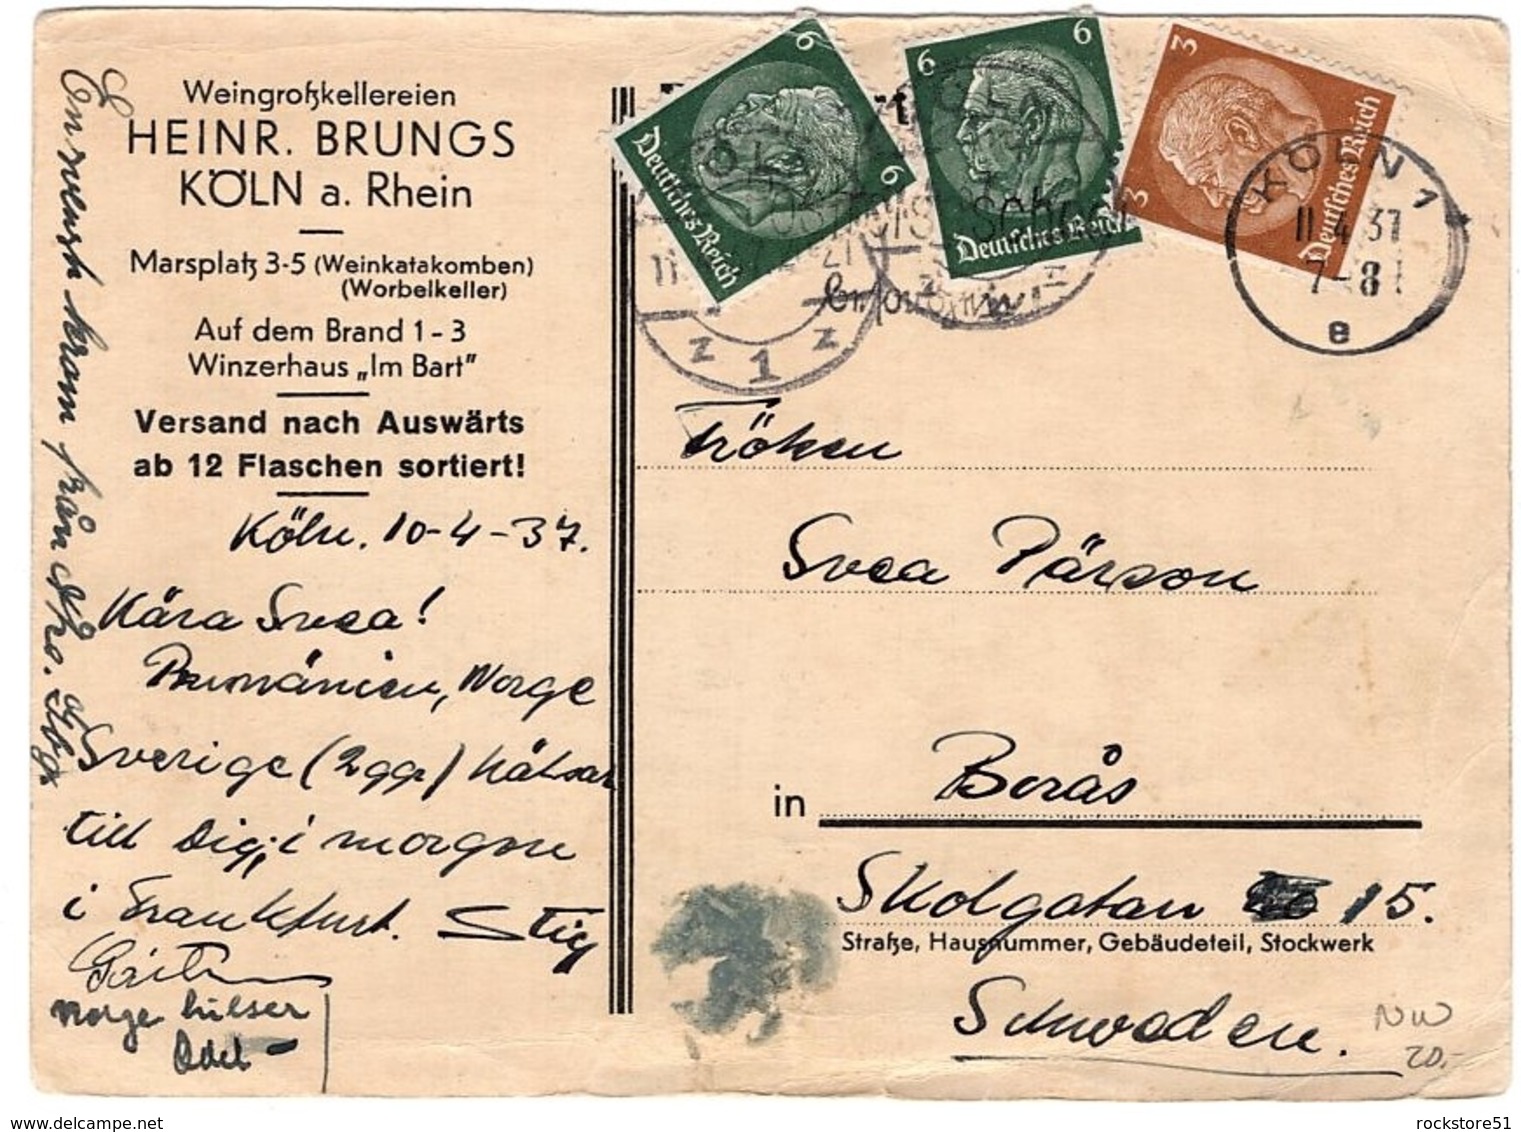 Weingroßkellereien
HEINR. BRUNGS
KÖLN a. Rhein
Marsplatz 3-5 (Weinkatakomben)
(Worbelkeller)
Auf dem Brand 1-3
Winzerhaus „Im Bart"
Versand nach Auswärts
ab 12 Flaschen sortiert!
Köln. 10-4-37.
Kära Svea!
Rumänien, Norge
Sverige (2 ggr) hälsar
till Dig, i morgon
i Frankfurt. Stig
Norge hilser
Odel
En svensk kram från
6
6
Deutsches Reich
6
6
Deutsches Reich
3
3
Deutsches Reich
KÖLN 1
11.4.37
7-8
e
z 1 z
Fröken
Svea Pärson
in Borås
Skolgatan 15.
Straße, Hausnummer, Gebäudeteil, Stockwerk
Schweden.
NW
20.-
rockstore51